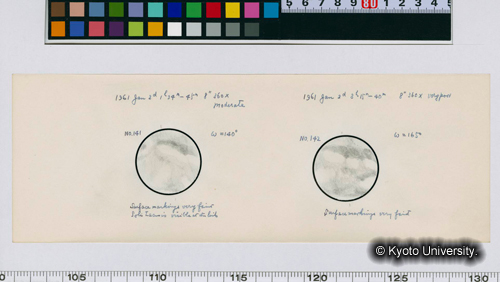 1961 Jan 2d 1h 24m-45m 8" 360x
moderate
No. 141
ω=140°
Surface markings very faint
1961 Jan 2d 2h 15m-40m 8" 360x very poor
No. 142
ω=165°
Surface markings very faint
5 6 7 8 9 80 1 2 3 4 5
105 110 115 120 125 130
© Kyoto University.